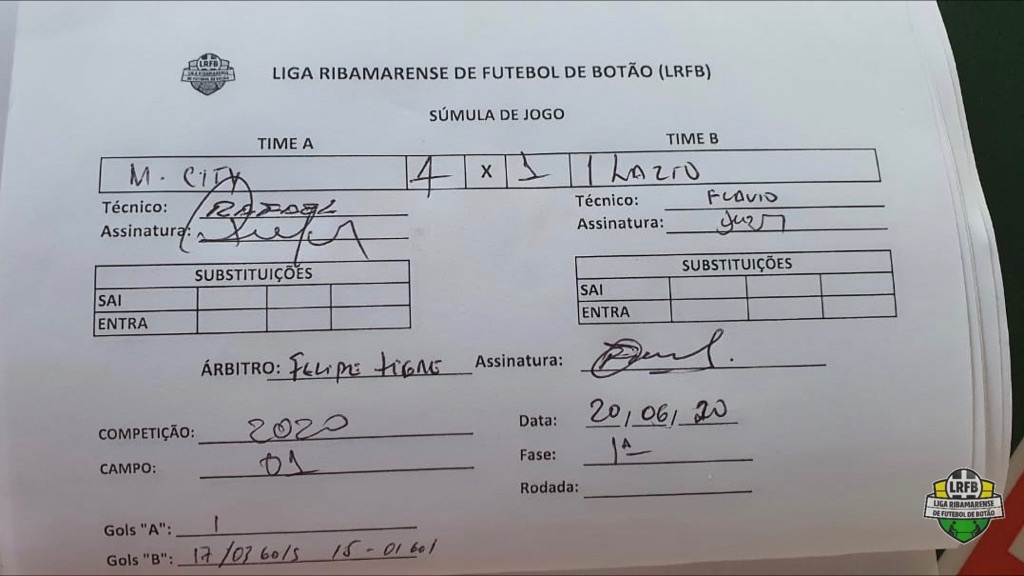 LRFB
LIGA RIBAMARENSE
DE FUTEBOL DE BOTÃO
LIGA RIBAMARENSE DE FUTEBOL DE BOTÃO (LRFB)
SÚMULA DE JOGO
TIME A TIME B
M. CITY 4 x 1 LAZIO
Técnico: RAFAEL Técnico: FLAVIO
Assinatura: Assinatura:
SUBSTITUIÇÕES SUBSTITUIÇÕES
SAI SAI
ENTRA ENTRA
ÁRBITRO: FELIPE TIGRE Assinatura:
COMPETIÇÃO: 2020 Data: 20/06/20
CAMPO: 01 Fase: 1ª
Rodada:
Gols "A": 1
Gols "B": 17/03 GOLS 15-01 GOL
LRFB
LIGA RIBAMARENSE
DE FUTEBOL DE BOTÃO